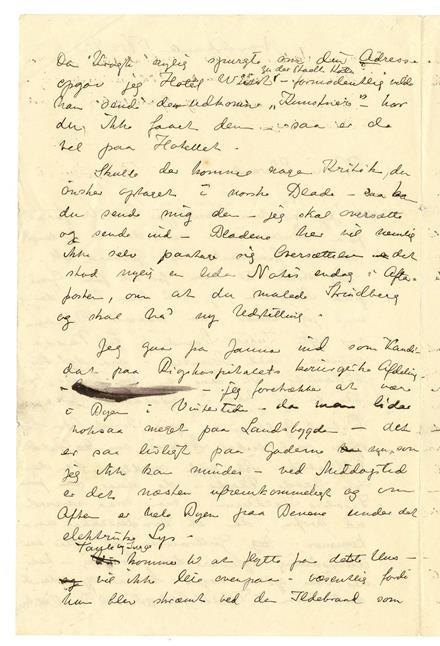 Da "Krogh" nylig spurgte om din Adresse
opgav jeg Hotel zu der Stadt Köln – formodentlig vilde
han sende den udkomne – har
du ikke faaet den – saa er de
vel paa Hotellet.
Skulde der komme nogen Kritik du
ønsker optaget i norske Blade – saa kan
du sende mig den – jeg skal oversætte
og sende ind – Bladene her vil nemlig
ikke selv paatage sig Oversættelsen – det
stod nylig en liden Notis endog i Aften-
posten, om at du malede Strindberg
og skal ha' ny Udstilling.
Jeg gaar paa ind som Kandi-
dat paa Rigshospitalets kirurgiske Afdeling
– jeg foretrække at være
i Byen i Vintertiden – da man lider
noksaa meget paa Landsbygden – det
er saa livligt paa Gaderne nu, som
jeg ikke kan mindes – ved Middagstid
er det næsten ufremkommeligt og om
Aften er hele Byen paa Benene under det
elektriske Lys.
Tante og Inger kommer til at flytte fra dette Hus –
vil ikke leie ovenpaa – væsentlig fordi
hun blev skræmt ved den Ildebrand som